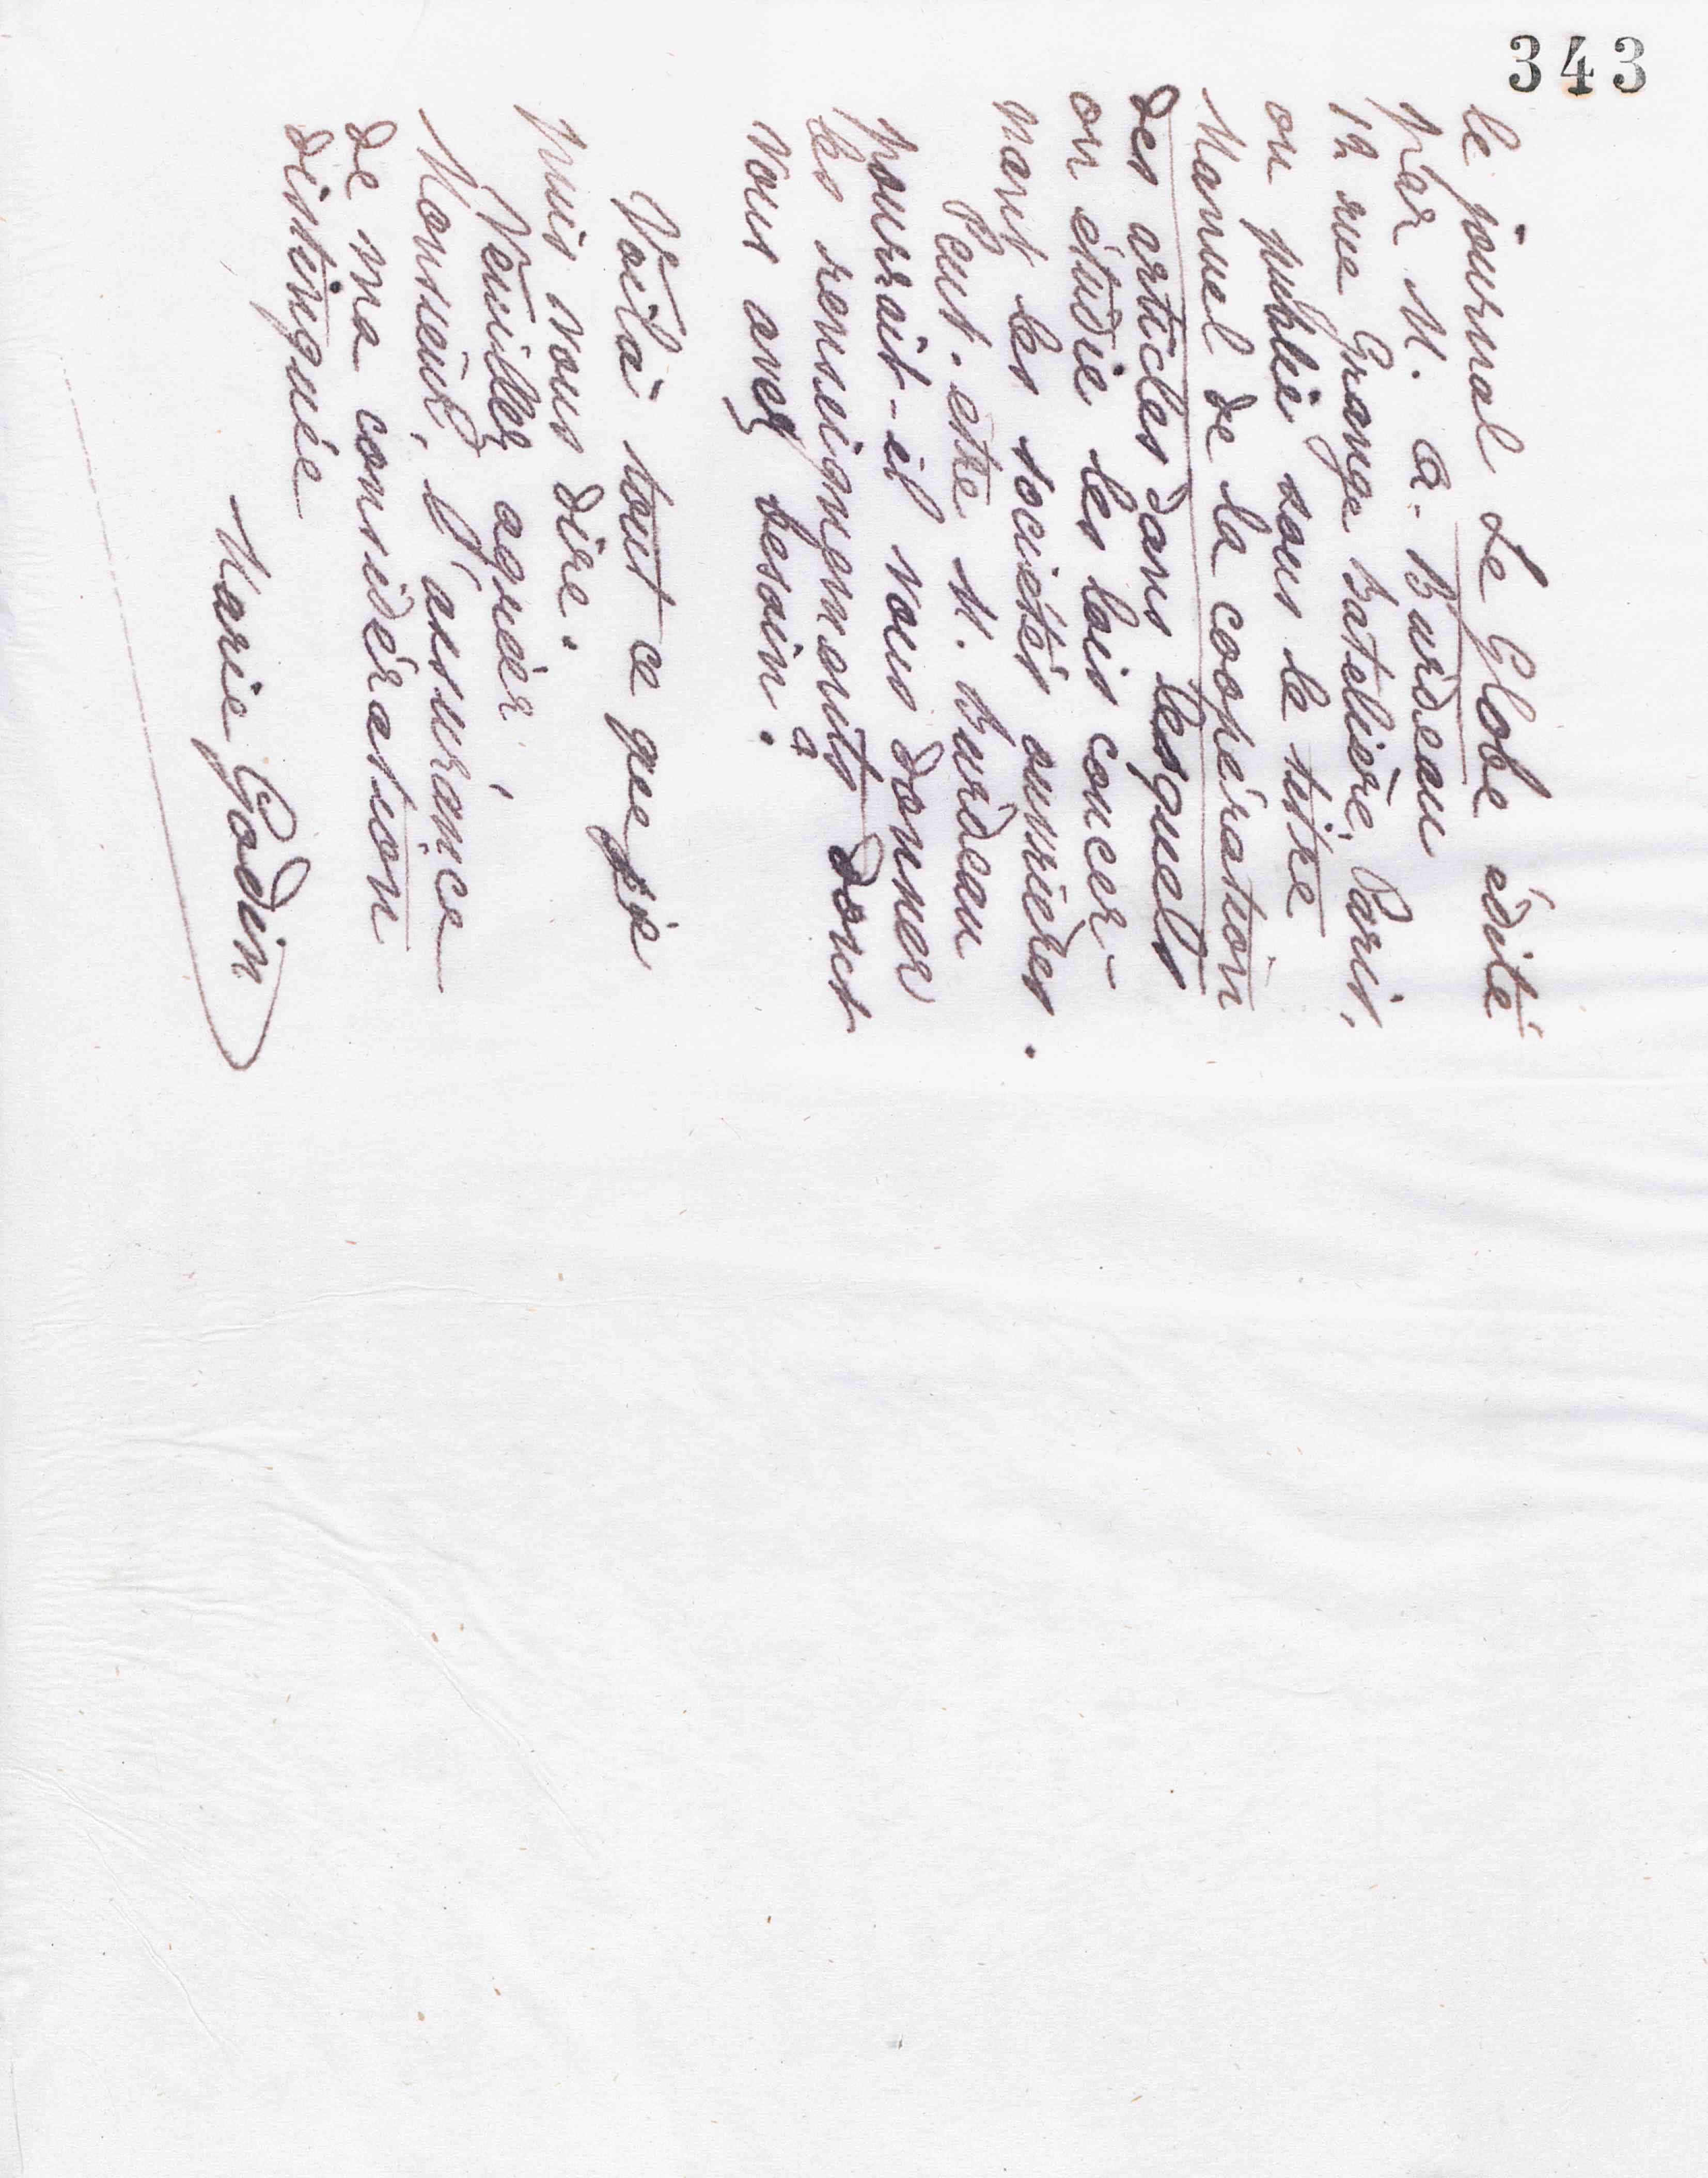 343
le journal Le Globe édité
par M. A. Burdeau
12 rue Grange Batelière, Paris,
on publie sous le titre
Manuel de la coopération
des articles dans lesquels
on étudie les lois concer-
nant les sociétés ouvrières.
Peut-être M. Burdeau
pourrait-il vous donner
les renseignements dont
vous avez besoin.
Voilà tout ce que je
puis vous dire.
Veuillez agréer,
Monsieur, l'assurance
de ma considération
distinguée
Marie Godin